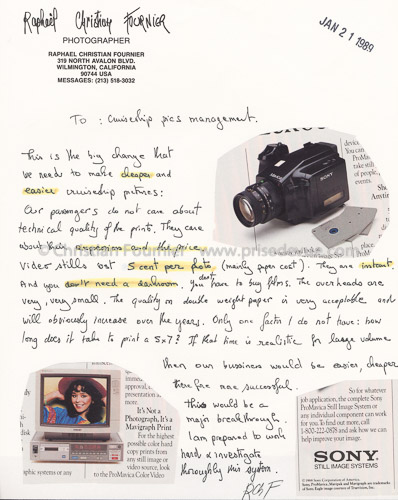 Raphaël Christian FOURNIER
PHOTOGRAPHER
RAPHAEL CHRISTIAN FOURNIER
319 NORTH AVALON BLVD.
WILMINGTON, CALIFORNIA
90744 USA
MESSAGES: (213) 518-3032
JAN 21 1989
To : Cruiseship pics management.
This is the big change that
be need to make cheaper and
easier cruiseship pictures:
Our passengers do not care about
technical quality of the prints. They care
about the expression and the price
Video stills cost 5 cent per photo (mainly paper cost). They are instant.
And you don't need a darkroom. You don't have to buy films. The overheads are
very, very small. The quality on double weight paper is very acceptable and
will obviously increase over the years. Only one factor I do not have: how
long does it take to print a 5x7? If that time is realistic for large volume
then our business would be easier, cheaper
therefore more successful.
This would be a
major breakthrough.
I am prepared to work
hard & investigate
thoroughly this system.
RCF
SONY
device.
You can
ProMavi
take still
of people,
events.
Simp
Anytim
place
ProMa
© Christian Fournier - www.prisedevue.com
immed
approval, a
presentation
more.
It's Not a
Photograph, It's a
Mavigraph Print
For the highest
possible color hard
copy prints from
any still image or
video source, look
to the ProMavica Color Video
graphic systems or any
So for whatever
job application, the complete Sony
ProMavica Still Image System or
any individual component can work
for you. To find out more, call
1-800-222-0878 and ask how we can
help improve your image.
SONY
STILL IMAGE SYSTEMS